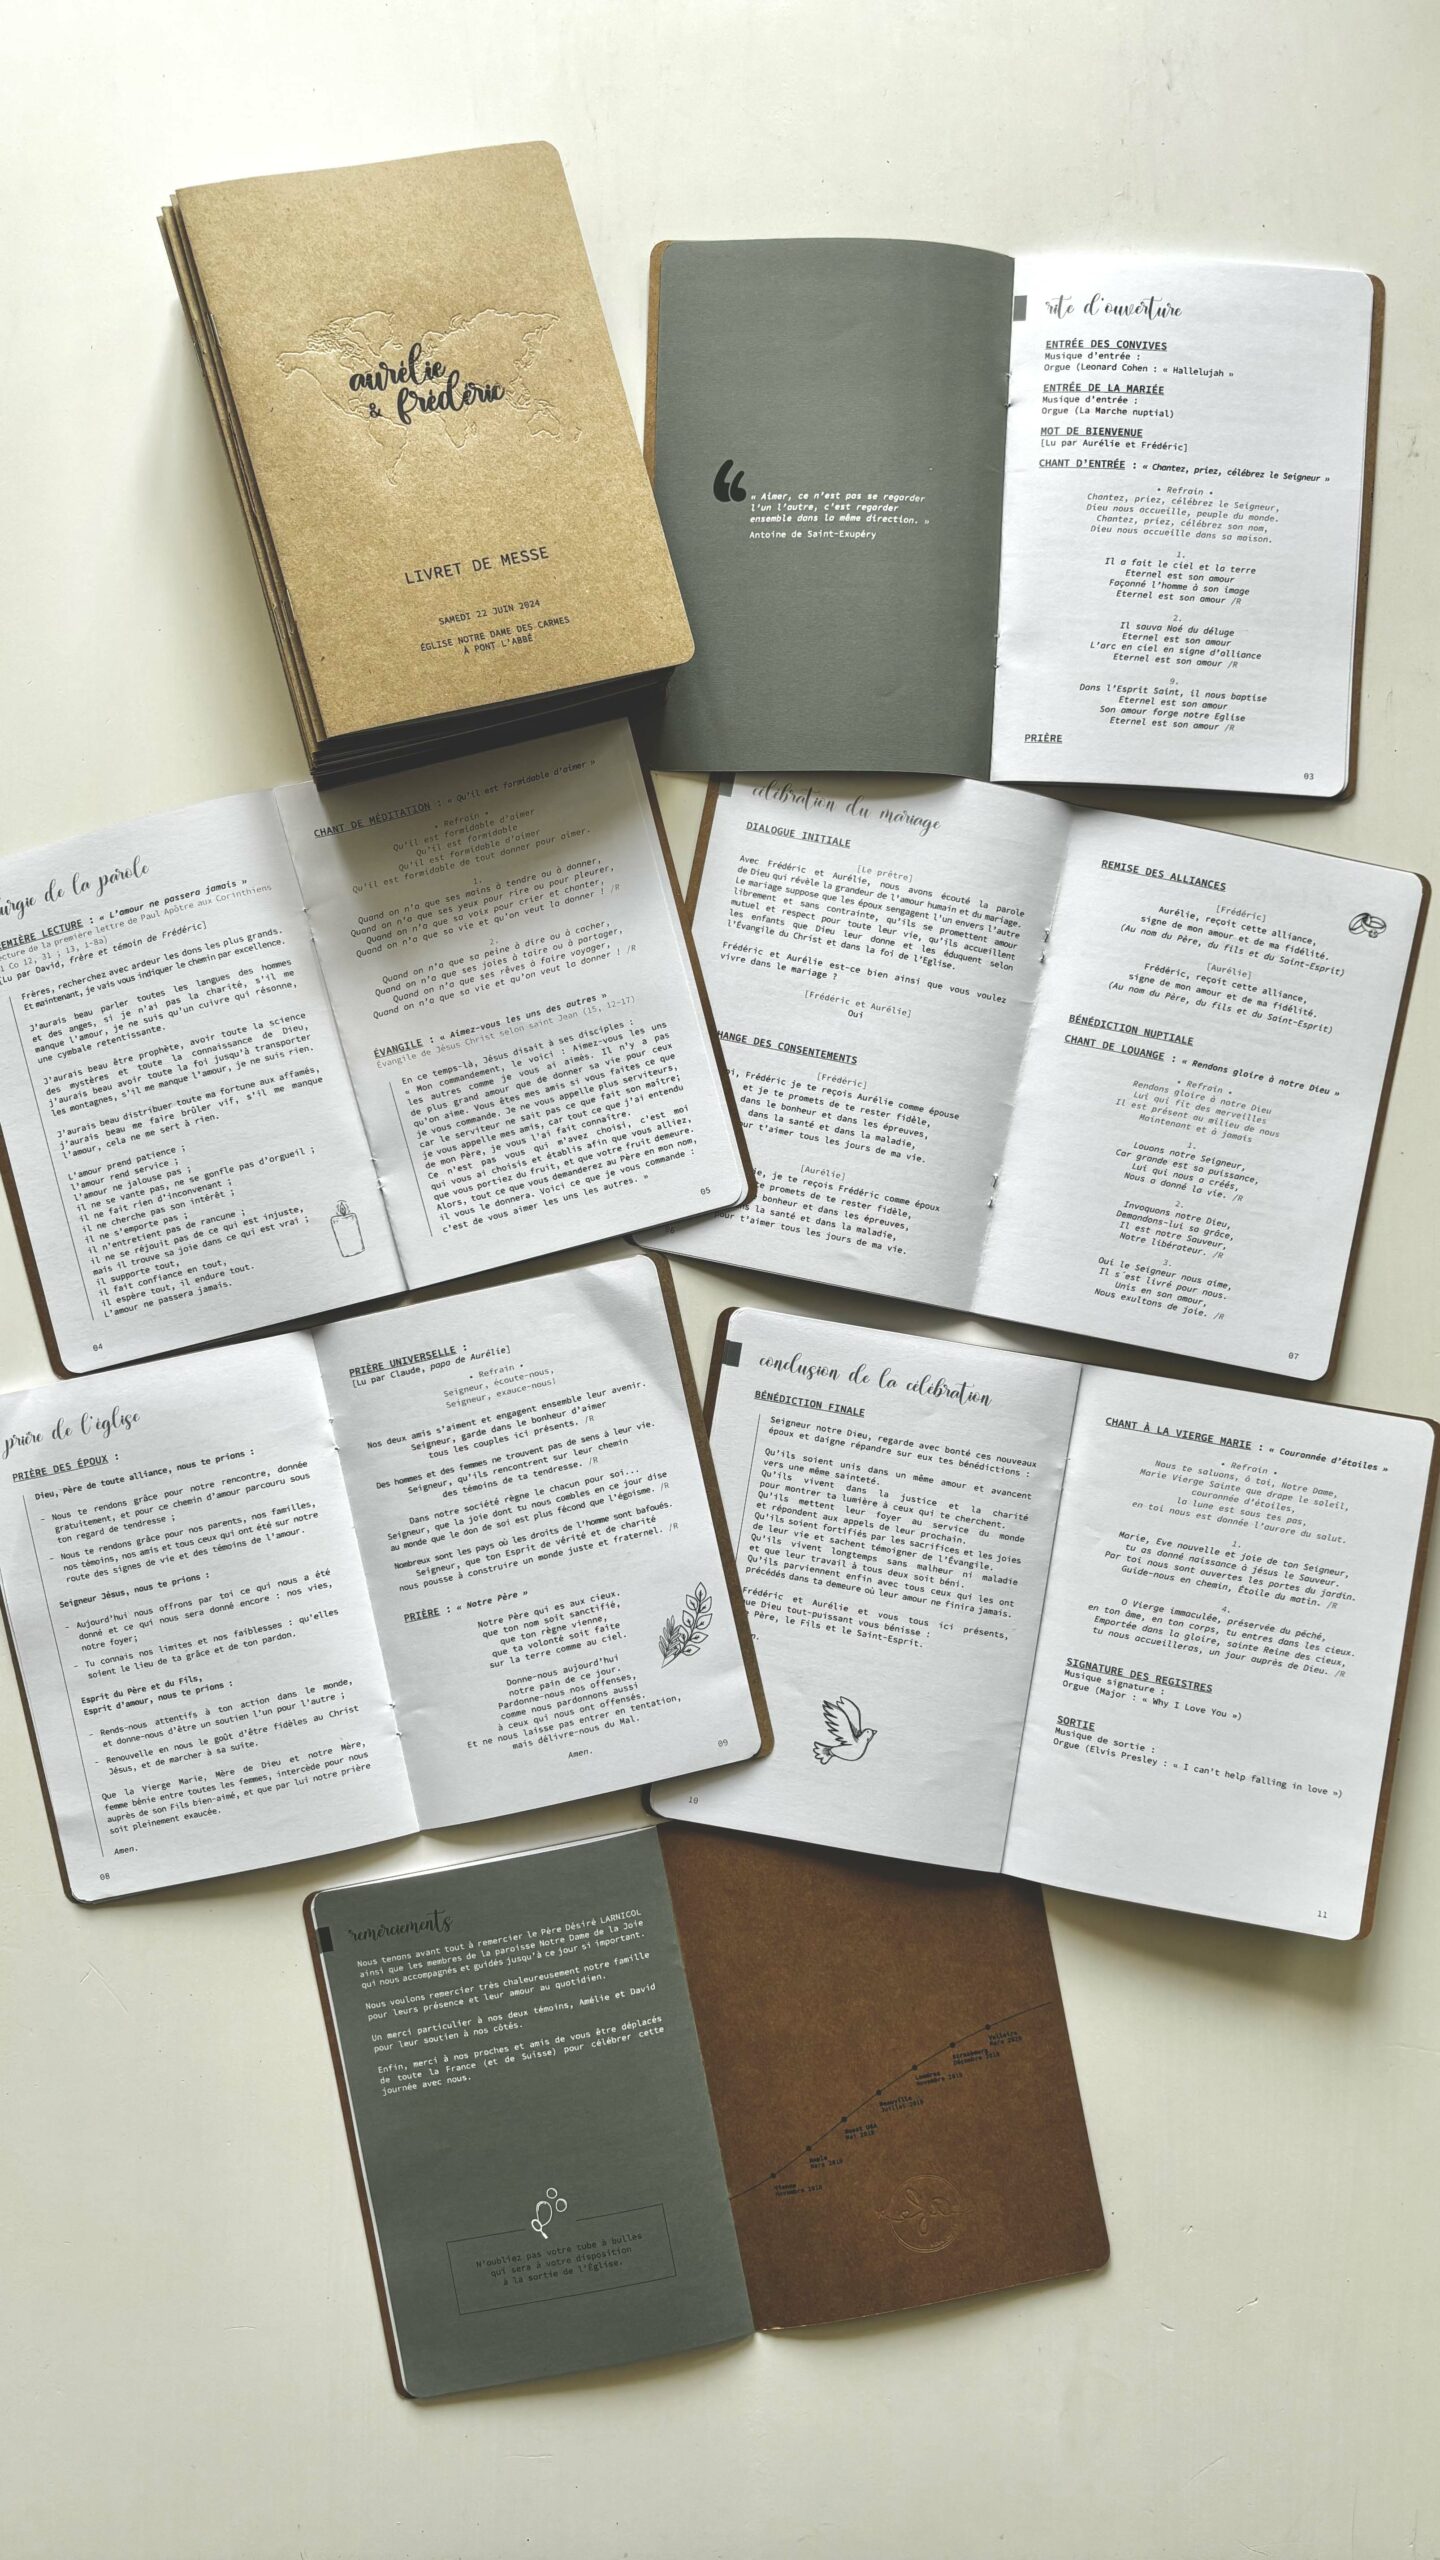 aurélie
& frédéric
LIVRET DE MESSE
SAMEDI 22 JUIN 2024
ÉGLISE NOTRE DAME DES CARMES
À PONT L'ABBÉ
« Aimer, ce n'est pas se regarder
l'un l'autre, c'est regarder
ensemble dans la même direction. »
Antoine de Saint-Exupéry
rite d'ouverture
ENTRÉE DES CONVIVES
Musique d'entrée :
Orgue (Leonard Cohen : « Hallelujah »
ENTRÉE DE LA MARIÉE
Musique d'entrée :
Orgue (La Marche nuptial)
MOT DE BIENVENUE
[Lu par Aurélie et Frédéric]
CHANT D'ENTRÉE : « Chantez, priez, célébrez le Seigneur »
• Refrain •
Chantez, priez, célébrez le Seigneur,
Dieu nous accueille, peuple du monde.
Chantez, priez, célébrez son nom,
Dieu nous accueille dans sa maison.
1.
Il a fait le ciel et la terre
Eternel est son amour
Façonné l'homme à son image
Eternel est son amour /R
2.
Il sauva Noé du déluge
Eternel est son amour
L'arc en ciel en signe d'alliance
Eternel est son amour /R
9.
Dans l'Esprit Saint, il nous baptise
Eternel est son amour
Son amour forge notre Eglise
Eternel est son amour /R
PRIÈRE
03
urgie de la parole
EMIÈRE LECTURE : « L'amour ne passera jamais »
ecture de la première lettre de Paul Apôtre aux Corinthiens
1 Co 12, 31 ; 13, 1-8a)
(Lu par David, frère et témoin de Frédéric]
Frères, recherchez avec ardeur les dons les plus grands.
Et maintenant, je vais vous indiquer le chemin par excellence.
J'aurais beau parler toutes les langues des hommes
et des anges, si je n'ai pas la charité, s'il me
manque l'amour, je ne suis qu'un cuivre qui résonne,
une cymbale retentissante.
J'aurais beau être prophète, avoir toute la science
des mystères et toute la connaissance de Dieu,
j'aurais beau avoir toute la foi jusqu'à transporter
les montagnes, s'il me manque l'amour, je ne suis rien.
J'aurais beau distribuer toute ma fortune aux affamés,
j'aurais beau me faire brûler vif, s'il me manque
l'amour, cela ne me sert à rien.
L'amour prend patience ;
l'amour rend service ;
l'amour ne jalouse pas ;
il ne se vante pas, ne se gonfle pas d'orgueil ;
il ne fait rien d'inconvenant ;
il ne cherche pas son intérêt ;
il ne s'emporte pas ;
il n'entretient pas de rancune ;
il ne se réjouit pas de ce qui est injuste,
mais il trouve sa joie dans ce qui est vrai ;
il supporte tout,
il fait confiance en tout,
il espère tout, il endure tout.
L'amour ne passera jamais.
04
CHANT DE MÉDITATION : « Qu'il est formidable d'aimer »
• Refrain •
Qu'il est formidable d'aimer
Qu'il est formidable
Qu'il est formidable d'aimer
Qu'il est formidable de tout donner pour aimer.
1.
Quand on n'a que ses mains à tendre ou à donner,
Quand on n'a que ses yeux pour rire ou pour pleurer,
Quand on n'a que sa voix pour crier et chanter,
Quand on n'a que sa vie et qu'on veut la donner ! /R
2.
Quand on n'a que sa peine à dire ou à cacher,
Quand on n'a que ses joies à taire ou à partager,
Quand on n'a que ses rêves à faire voyager,
Quand on n'a que sa vie et qu'on veut la donner ! /R
ÉVANGILE : « Aimez-vous les uns des autres »
Évangile de Jésus Christ selon saint Jean (15, 12-17)
En ce temps-là, Jésus disait à ses disciples :
« Mon commandement, le voici : Aimez-vous les uns
les autres comme je vous ai aimés. Il n'y a pas
de plus grand amour que de donner sa vie pour ceux
qu'on aime. Vous êtes mes amis si vous faites ce que
je vous commande. Je ne vous appelle plus serviteurs,
car le serviteur ne sait pas ce que fait son maître;
je vous appelle mes amis, car tout ce que j'ai entendu
de mon Père, je vous l'ai fait connaître.
Ce n'est pas vous qui m'avez choisi, c'est moi
qui vous ai choisis et établis afin que vous alliez,
que vous portiez du fruit, et que votre fruit demeure.
Alors, tout ce que vous demanderez au Père en mon nom,
il vous le donnera. Voici ce que je vous commande :
c'est de vous aimer les uns les autres. »
05
célébration du mariage
DIALOGUE INITIALE
[Le prêtre]
Avec Frédéric et Aurélie, nous avons écouté la parole
de Dieu qui révèle la grandeur de l'amour humain et du mariage.
Le mariage suppose que les époux sengagent l'un envers l'autre
librement et sans contrainte, qu'ils se promettent amour
mutuel et respect pour toute leur vie, qu'ils accueillent
les enfants que Dieu leur donne et les éduquent selon
l'Évangile du Christ et dans la foi de l'Eglise.
Frédéric et Aurélie est-ce bien ainsi que vous voulez
vivre dans le mariage ?
[Frédéric et Aurélie]
Oui
HANGE DES CONSENTEMENTS
[Frédéric]
oi, Frédéric je te reçois Aurélie comme épouse
et je te promets de te rester fidèle,
dans le bonheur et dans les épreuves,
dans la santé et dans la maladie,
ur t'aimer tous les jours de ma vie.
[Aurélie]
ie, je te reçois Frédéric comme époux
te promets de te rester fidèle,
bonheur et dans les épreuves,
s la santé et dans la maladie,
our t'aimer tous les jours de ma vie.
REMISE DES ALLIANCES
[Frédéric]
Aurélie, reçoit cette alliance,
signe de mon amour et de ma fidélité.
(Au nom du Père, du fils et du Saint-Esprit)
[Aurélie]
Frédéric, reçoit cette alliance,
signe de mon amour et de ma fidélité.
(Au nom du Père, du fils et du Saint-Esprit)
BÉNÉDICTION NUPTIALE
CHANT DE LOUANGE : « Rendons gloire à notre Dieu »
• Refrain •
Rendons gloire à notre Dieu
Lui qui fit des merveilles
Il est présent au milieu de nous
Maintenant et à jamais
1.
Louons notre Seigneur,
Car grande est sa puissance,
Lui qui nous a créés,
Nous a donné la vie. /R
2.
Invoquons notre Dieu,
Demandons-lui sa grâce,
Il est notre Sauveur,
Notre libérateur. /R
3.
Oui le Seigneur nous aime,
Il s'est livré pour nous.
Unis en son amour,
Nous exultons de joie. /R
07
prière de l'église
PRIÈRE DES ÉPOUX :
Dieu, Père de toute alliance, nous te prions :
- Nous te rendons grâce pour notre rencontre, donnée
gratuitement, et pour ce chemin d'amour parcouru sous
ton regard de tendresse ;
- Nous te rendons grâce pour nos parents, nos familles,
nos témoins, nos amis et tous ceux qui ont été sur notre
route des signes de vie et des témoins de l'amour.
Seigneur Jésus, nous te prions :
- Aujourd'hui nous offrons par toi ce qui nous a été
donné et ce qui nous sera donné encore : nos vies,
notre foyer;
- Tu connais nos limites et nos faiblesses : qu'elles
soient le lieu de ta grâce et de ton pardon.
Esprit du Père et du Fils,
Esprit d'amour, nous te prions :
- Rends-nous attentifs à ton action dans le monde,
et donne-nous d'être un soutien l'un pour l'autre ;
- Renouvelle en nous le goût d'être fidèles au Christ
Jésus, et de marcher à sa suite.
Que la Vierge Marie, Mère de Dieu et notre Mère,
femme bénie entre toutes les femmes, intercède pour nous
auprès de son Fils bien-aimé, et que par lui notre prière
soit pleinement exaucée.
Amen.
08
PRIÈRE UNIVERSELLE :
[Lu par Claude, papa de Aurélie]
• Refrain •
Seigneur, écoute-nous,
Seigneur, exauce-nous!
Nos deux amis s'aiment et engagent ensemble leur avenir.
Seigneur, garde dans le bonheur d'aimer
tous les couples ici présents. /R
Des hommes et des femmes ne trouvent pas de sens à leur vie.
Seigneur, qu'ils rencontrent sur leur chemin
des témoins de ta tendresse. /R
Dans notre société règne le chacun pour soi...
Seigneur, que la joie dont tu nous combles en ce jour dise
au monde que le don de soi est plus fécond que l'égoïsme. /R
Nombreux sont les pays où les droits de l'homme sont bafoués.
Seigneur, que ton Esprit de vérité et de charité
nous pousse à construire un monde juste et fraternel. /R
PRIÈRE : « Notre Père »
Notre Père qui es aux cieux,
que ton nom soit sanctifié,
que ton règne vienne,
que ta volonté soit faite
sur la terre comme au ciel.
Donne-nous aujourd'hui
notre pain de ce jour.
Pardonne-nous nos offenses,
comme nous pardonnons aussi
à ceux qui nous ont offensés.
Et ne nous laisse pas entrer en tentation,
mais délivre-nous du Mal.
Amen.
09
conclusion de la célébration
BÉNÉDICTION FINALE
Seigneur notre Dieu, regarde avec bonté ces nouveaux
époux et daigne répandre sur eux tes bénédictions :
Qu'ils soient unis dans un même amour et avancent
vers une même sainteté.
Qu'ils vivent dans la justice et la charité
pour montrer ta lumière à ceux qui te cherchent.
Qu'ils mettent leur foyer au service du monde
et répondent aux appels de leur prochain.
Qu'ils soient fortifiés par les sacrifices et les joies
de leur vie et sachent témoigner de l'Évangile.
Qu'ils vivent longtemps sans malheur ni maladie
et que leur travail à tous deux soit béni.
Qu'ils parviennent enfin avec tous ceux qui les ont
précédés dans ta demeure où leur amour ne finira jamais.
rédéric et Aurélie et vous tous ici présents,
ue Dieu tout-puissant vous bénisse :
e Père, le Fils et le Saint-Esprit.
n.
10
CHANT À LA VIERGE MARIE : « Couronnée d'étoiles »
• Refrain •
Nous te saluons, ô toi, Notre Dame,
Marie Vierge Sainte que drape le soleil,
couronnée d'étoiles,
la lune est sous tes pas,
en toi nous est donnée l'aurore du salut.
1.
Marie, Eve nouvelle et joie de ton Seigneur,
tu as donné naissance à jésus le Sauveur.
Par toi nous sont ouvertes les portes du jardin.
Guide-nous en chemin, Étoile du matin. /R
4.
O Vierge immaculée, préservée du péché,
en ton âme, en ton corps, tu entres dans les cieux.
Emportée dans la gloire, sainte Reine des cieux,
tu nous accueilleras, un jour auprès de Dieu. /R
SIGNATURE DES REGISTRES
Musique signature :
Orgue (Major : « Why I Love You »)
SORTIE
Musique de sortie :
Orgue (Elvis Presley : « I can't help falling in love »)
11
remerciements
Nous tenons avant tout à remercier le Père Désiré LARNICOL
ainsi que les membres de la paroisse Notre Dame de la Joie
qui nous accompagnés et guidés jusqu'à ce jour si important.
Nous voulons remercier très chaleureusement notre famille
pour leurs présence et leur amour au quotidien.
Un merci particulier à nos deux témoins, Amélie et David
pour leur soutien à nos côtés.
Enfin, merci à nos proches et amis de vous être déplacés
de toute la France (et de Suisse) pour célébrer cette
journée avec nous.
N'oubliez pas votre tube à bulles
qui sera à votre disposition
à la sortie de l'Église.
Strasbourg
Décembre 2019
Londres
Ouest USA
Vienne